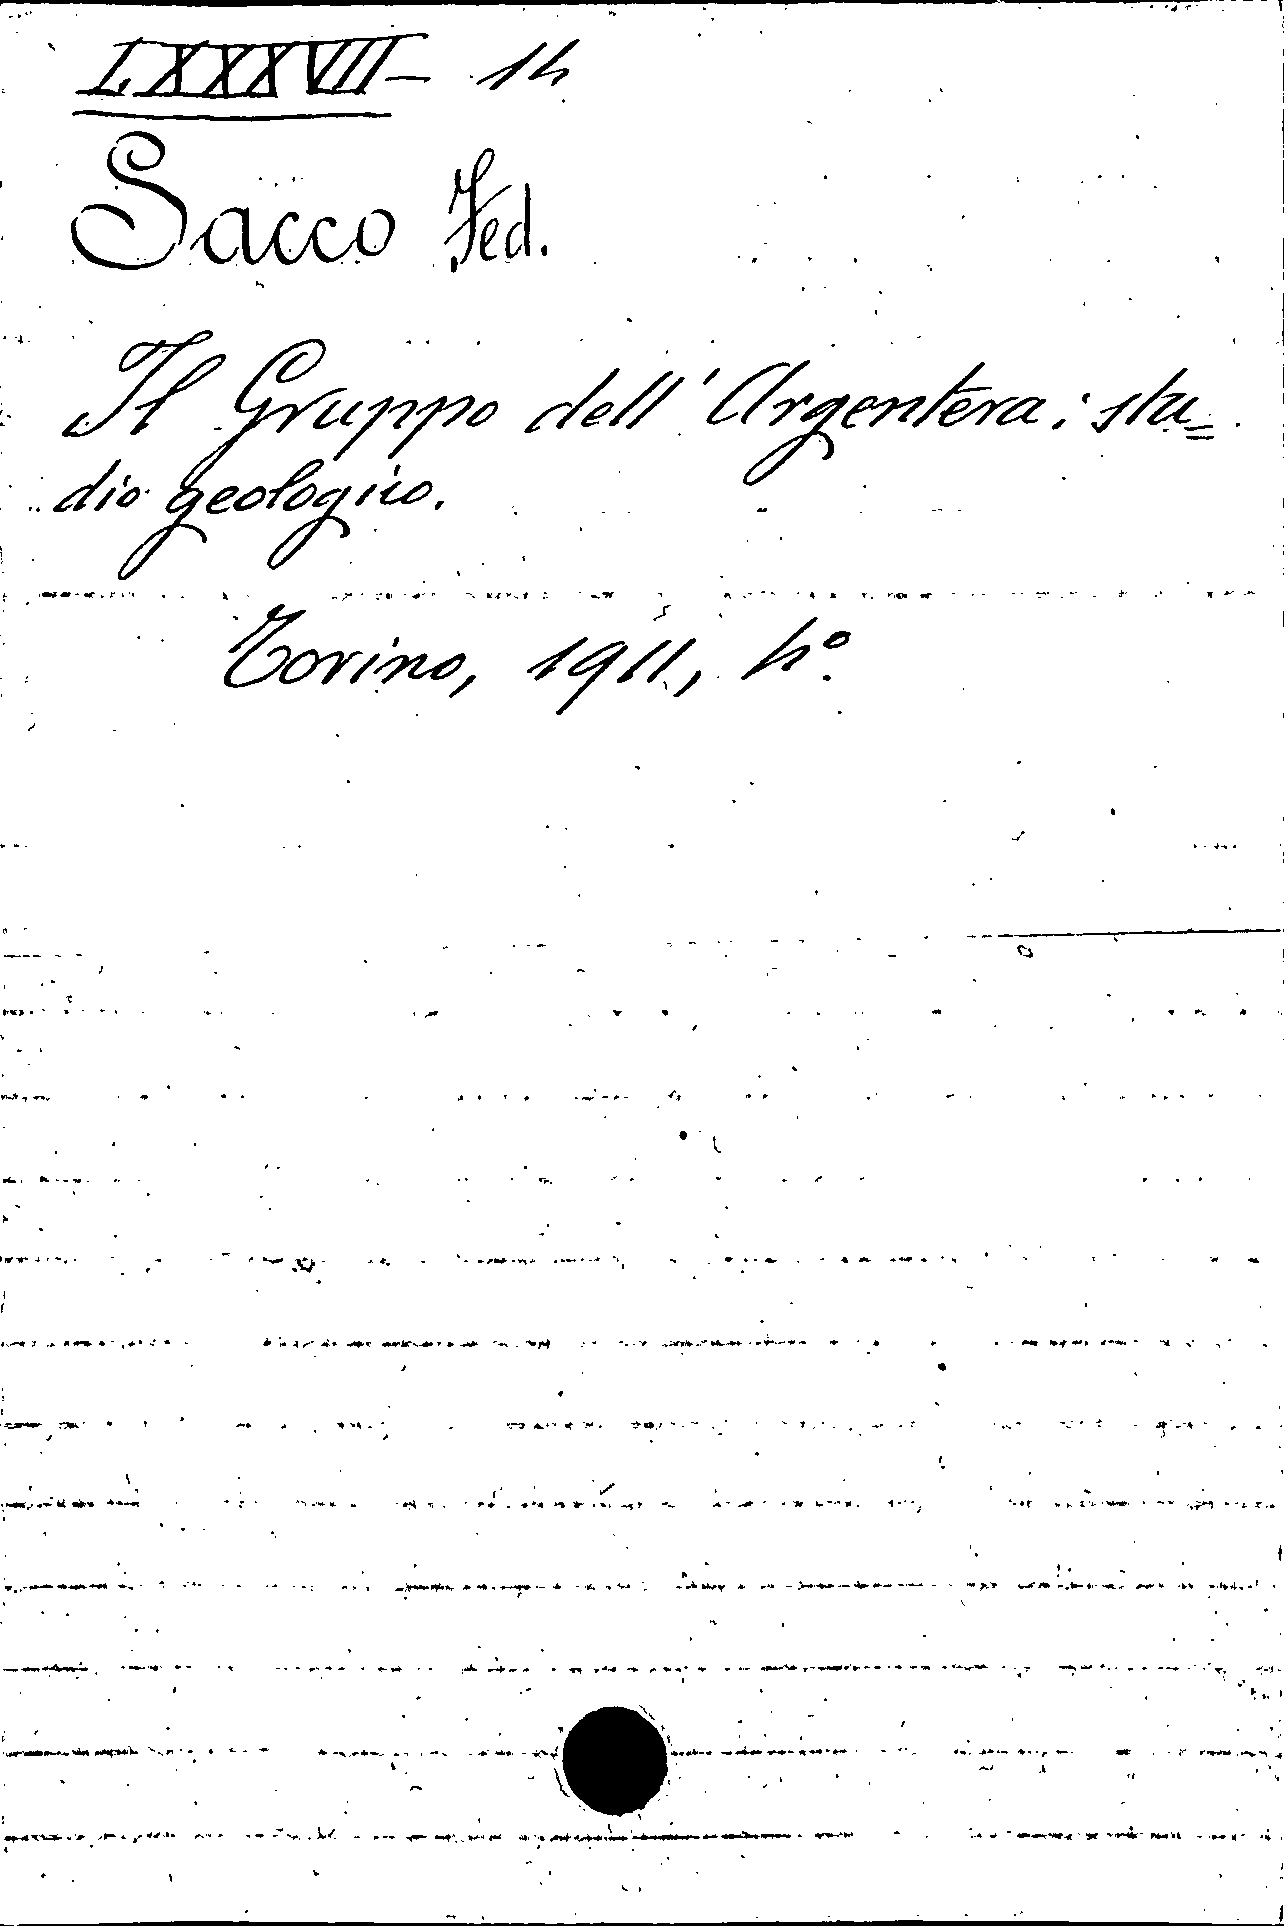 LXXXVII - 14
Sacco Fed.
Il Gruppo dell'Argentera: stu=
dio geologico.
Torino, 1911, 4º.